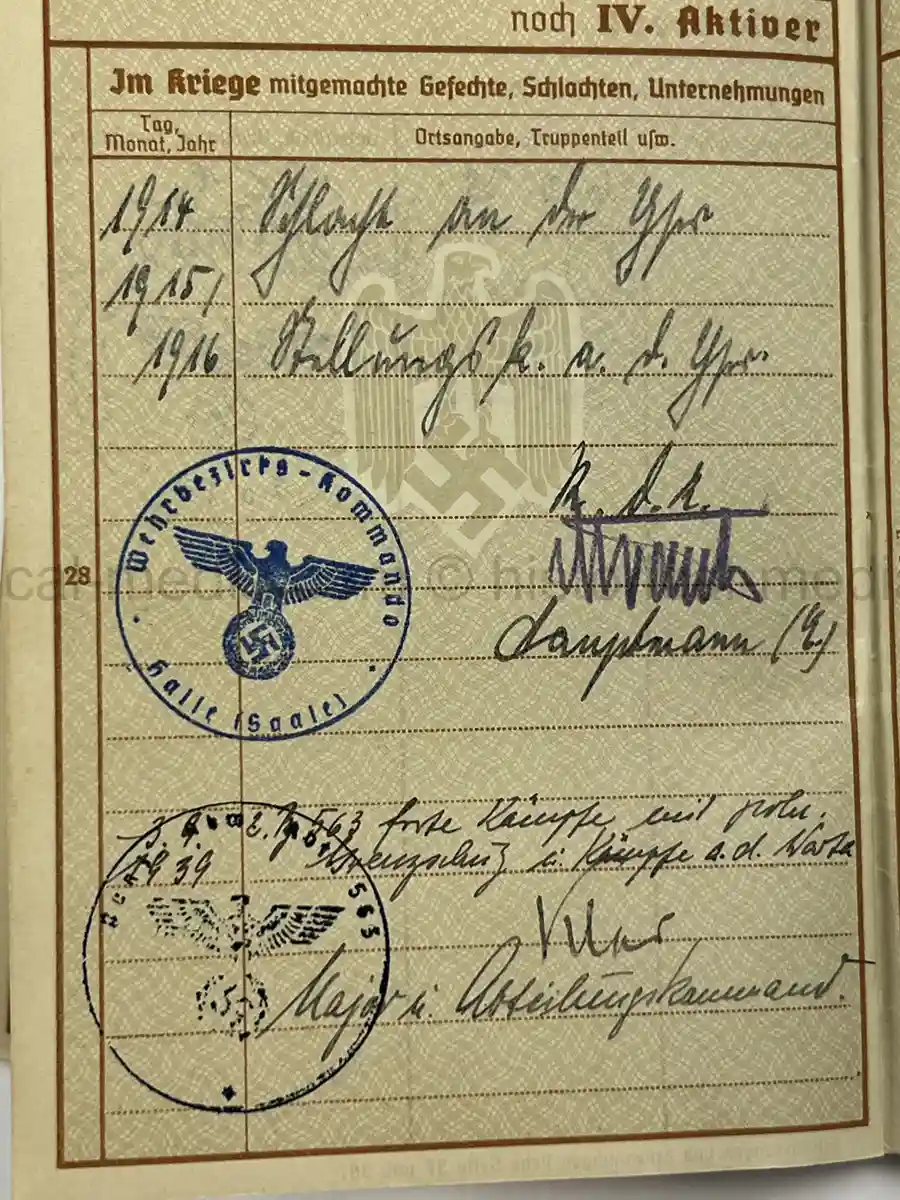 noch IV. Aktiver
Im Kriege mitgemachte Gefechte, Schlachten, Unternehmungen
Tag, Monat, Jahr
Ortsangabe, Truppenteil usw.
1914 Schlacht an der Yser
1915/
1916 Stellungsk. a. d. Yser.
Wehrbezirks-Kommando
Halle (Saale)
R. d. A.
Hauptmann (E)
28
3. 9. 2. 563 Kämpfe mit poln.
1939 Grenzschutz u. Kämpfe a. d. Warta
563
Major u. Abteilungskommand.